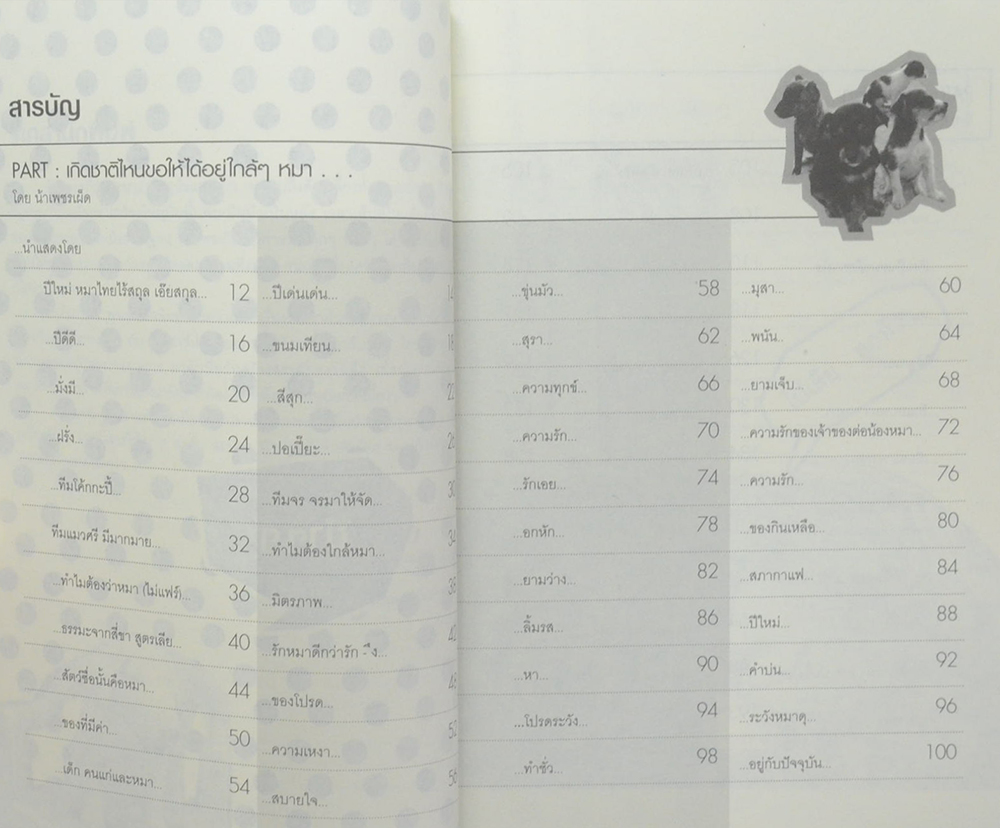 สารบัญ
PART : เกิดชาติไหนขอให้ได้อยู่ใกล้ๆ หมา . . .
โดย น้าเพชรเผ็ด
...นำแสดงโดย
ปีใหม่ หมาไทยไร้สกุล เอ๊ยสกุล... 12
...ปีเด่นเด่น... 14
...ปีดีดี... 16
...ขนมเทียน... 18
...มั่งมี... 20
...สีสุก... 2
...ฝรั่ง... 24
...ปอเปี๊ยะ... 2
...ทีมโค้กกะปี้... 28
...ทีมจร จรมาให้จัด... 30
ทีมแมวศรี มีมากมาย... 32
...ทำไมต้องใกล้หมา... 34
...ทำไมต้องว่าหมา (ไม่แฟร์)... 36
...มิตรภาพ... 38
...ธรรมะจากสี่ขา สูตรเลีย... 40
...รักหมาดีกว่ารัก - ึง... 42
...สัตว์ชื่อนั้นคือหมา... 44
...ของโปรด... 48
...ของที่มีค่า... 50
...ความเหงา... 52
...เด็ก คนแก่และหมา... 54
...สบายใจ... 56
...ขุ่นมัว... 58
...มุสา... 60
...สุรา... 62
...พนัน.. 64
...ความทุกข์... 66
...ยามเจ็บ... 68
...ความรัก... 70
...ความรักของเจ้าของต่อน้องหมา... 72
...รักเอย... 74
...ความรัก... 76
...อกหัก... 78
...ของกินเหลือ... 80
...ยามว่าง... 82
...สภากาแฟ... 84
...ลิ้มรส... 86
...ปีใหม่... 88
...หา... 90
...คำบ่น... 92
...โปรดระวัง... 94
...ระวังหมาดุ... 96
...ทำชั่ว... 98
...อยู่กับปัจจุบัน... 100